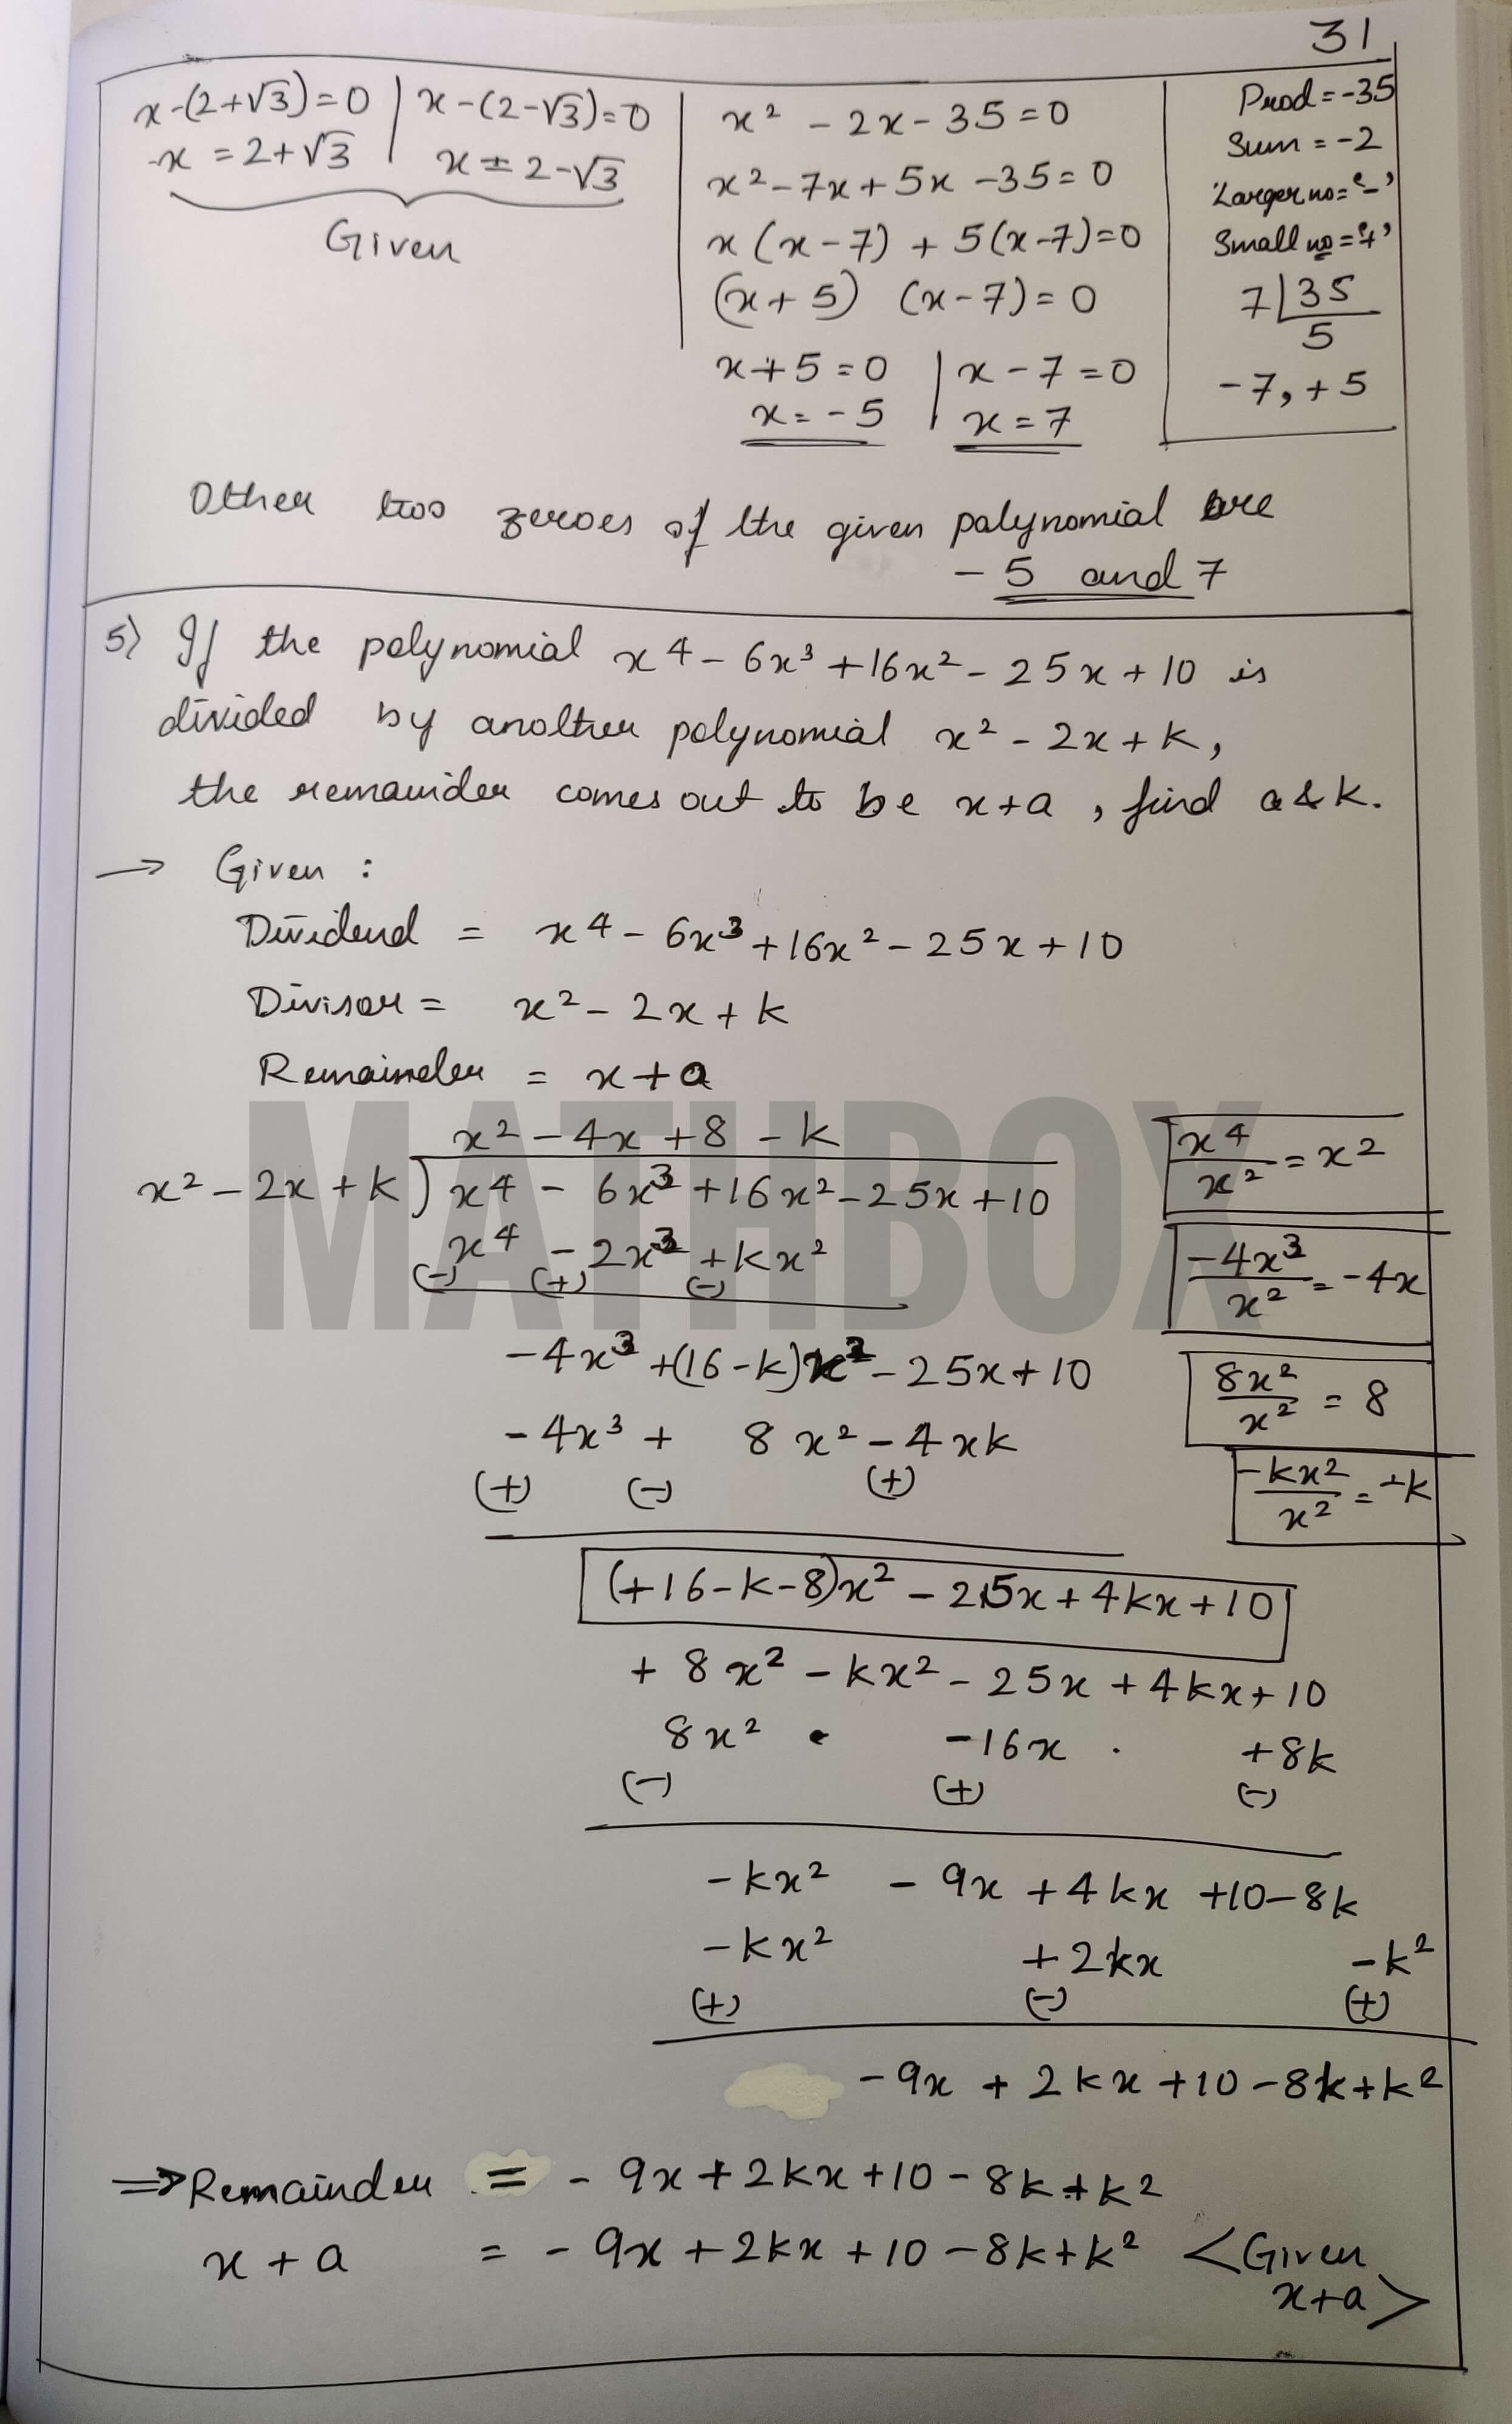 31
x-(2+√3)=0 | x-(2-√3)=0
x = 2+√3 | x = 2-√3
Given
x² - 2x - 35 = 0
x² - 7x + 5x - 35 = 0
x (x - 7) + 5(x-7) = 0
(x + 5) (x - 7) = 0
x + 5 = 0 | x - 7 = 0
x = - 5 | x = 7
Prod = -35
Sum = -2
Larger no = '-'
Small no = '+'
7|35
5
-7, +5
Other two zeroes of the given polynomial are
- 5 and 7
5) If the polynomial x⁴ - 6x³ + 16x² - 25x + 10 is
divided by another polynomial x² - 2x + k,
the remainder comes out to be x+a , find a & k.
→ Given :
Dividend = x⁴ - 6x³ + 16x² - 25x + 10
Divisor = x² - 2x + k
Remainder = x + a
MATHBOX
x² - 4x + 8 - k
x² - 2x + k ) x⁴ - 6x³ + 16x² - 25x + 10
x⁴ - 2x³ + kx²
(-) (+) (-)
-4x³ + (16-k)x² - 25x + 10
- 4x³ + 8x² - 4xk
(+) (-) (+)
(+16-k-8)x² - 25x + 4kx + 10
+ 8x² - kx² - 25x + 4kx + 10
8x² -16x +8k
(-) (+) (-)
-kx² - 9x + 4kx +10-8k
-kx² +2kx -k²
(+) (-) (+)
-9x + 2kx + 10 - 8k + k²
x⁴/x² = x²
-4x³/x² = -4x
8x²/x² = 8
-kx²/x² = -k
⇒ Remainder = - 9x + 2kx + 10 - 8k + k²
x + a = - 9x + 2kx + 10 - 8k + k² <Given
x+a>